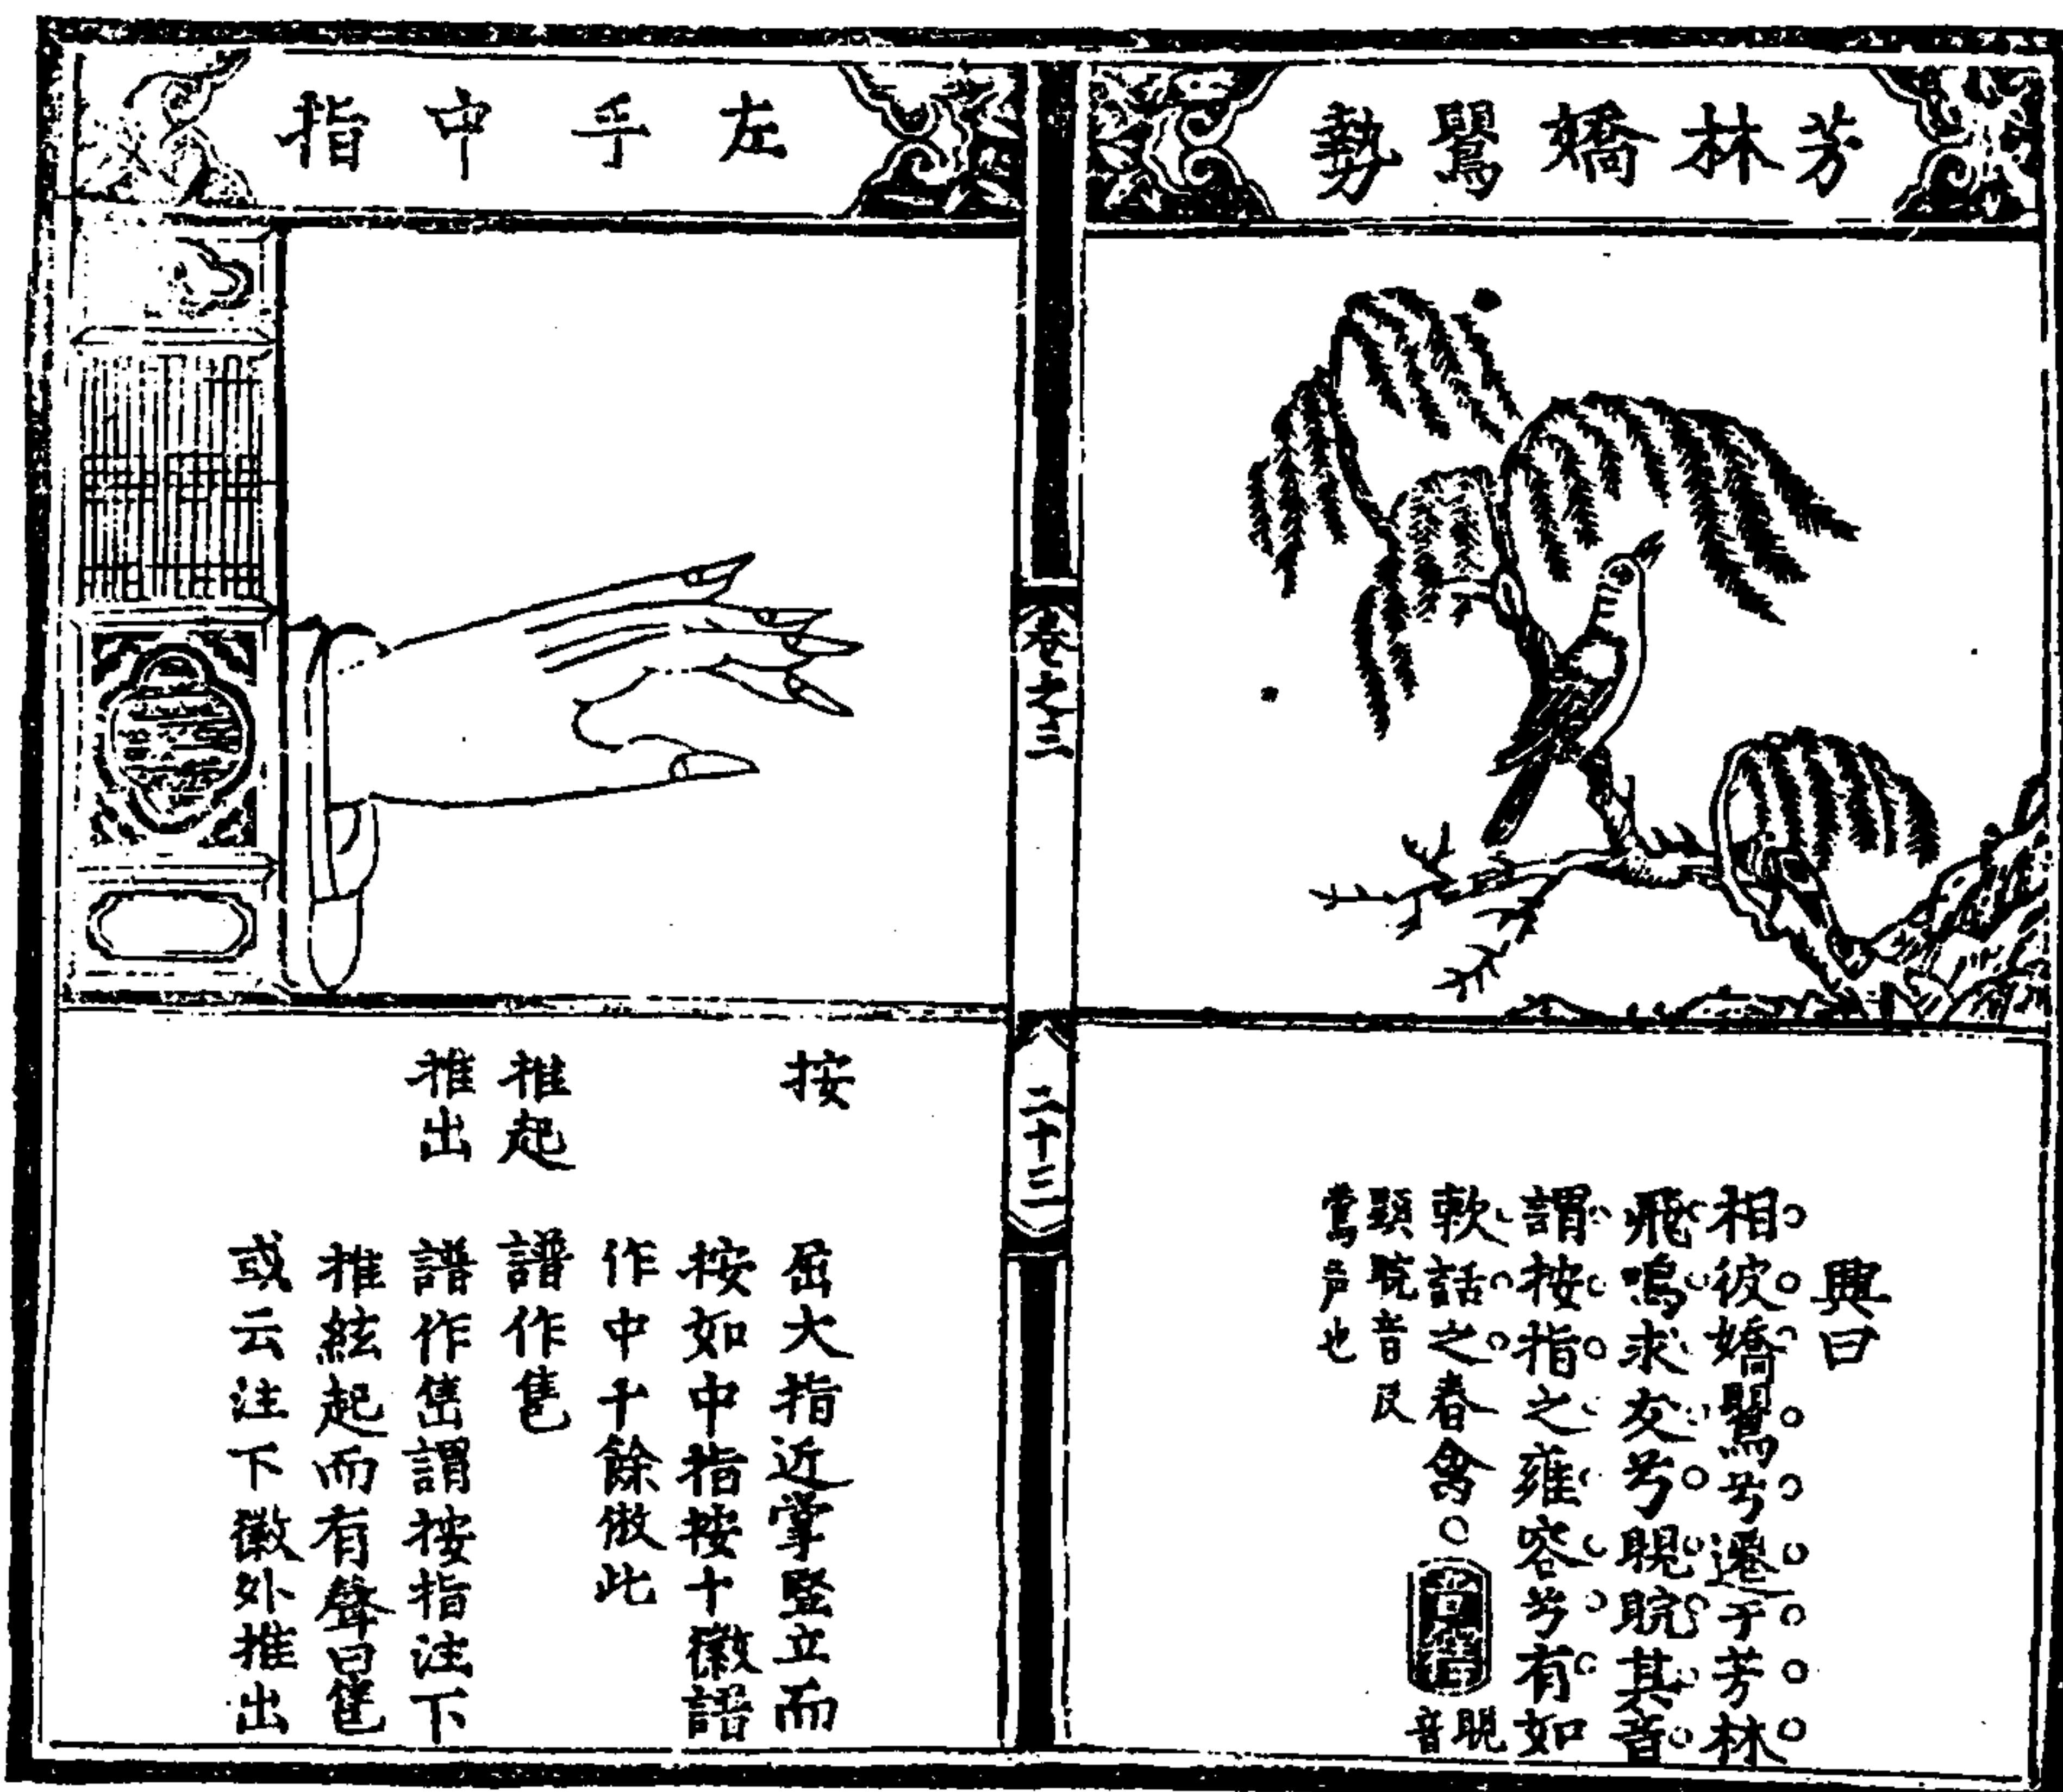 芳林嬌鸎勢
興曰
相彼嬌鸎兮遷于芳林
飛鳴求友兮睍睆其音
謂按指之雍容兮有如
歕話之春禽
睍音
顯睆音
鶯声也
卷之三
二十三
左手中指
按
屈大指近掌豎立而
按如中指按十徽譜
作中十餘倣此
推起
譜作
推出
譜作𨿽謂按指注下
推絃起而有聲曰
或云注下徽外推出